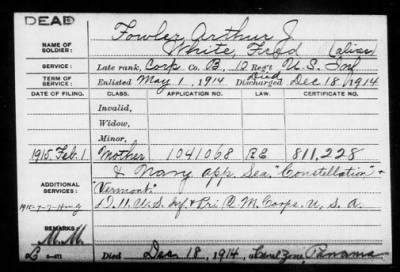 DEAD
NAME OF SOLDIER: Fowler, Arthur J.
White, Fred (alias)
SERVICE: Late rank, Corp Co. B, 10 Reg't U.S. Inf
TERM OF SERVICE: Enlisted May 1, 1914 Died Discharged Dec 18, 1914
DATE OF FILING. CLASS. APPLICATION NO. LAW. CERTIFICATE NO.
Invalid,
Widow,
Minor,
1915. Feb. 1 Mother 1041068 RE 811,228
ADDITIONAL SERVICES: & Navy app. Sea. "Constellation" &
"Vermont"
U.S. Inf. & Pri Q M. Corps. U. S. A.
REMARKS:
Died Dec 18, 1914, at Canal Zone, Panama